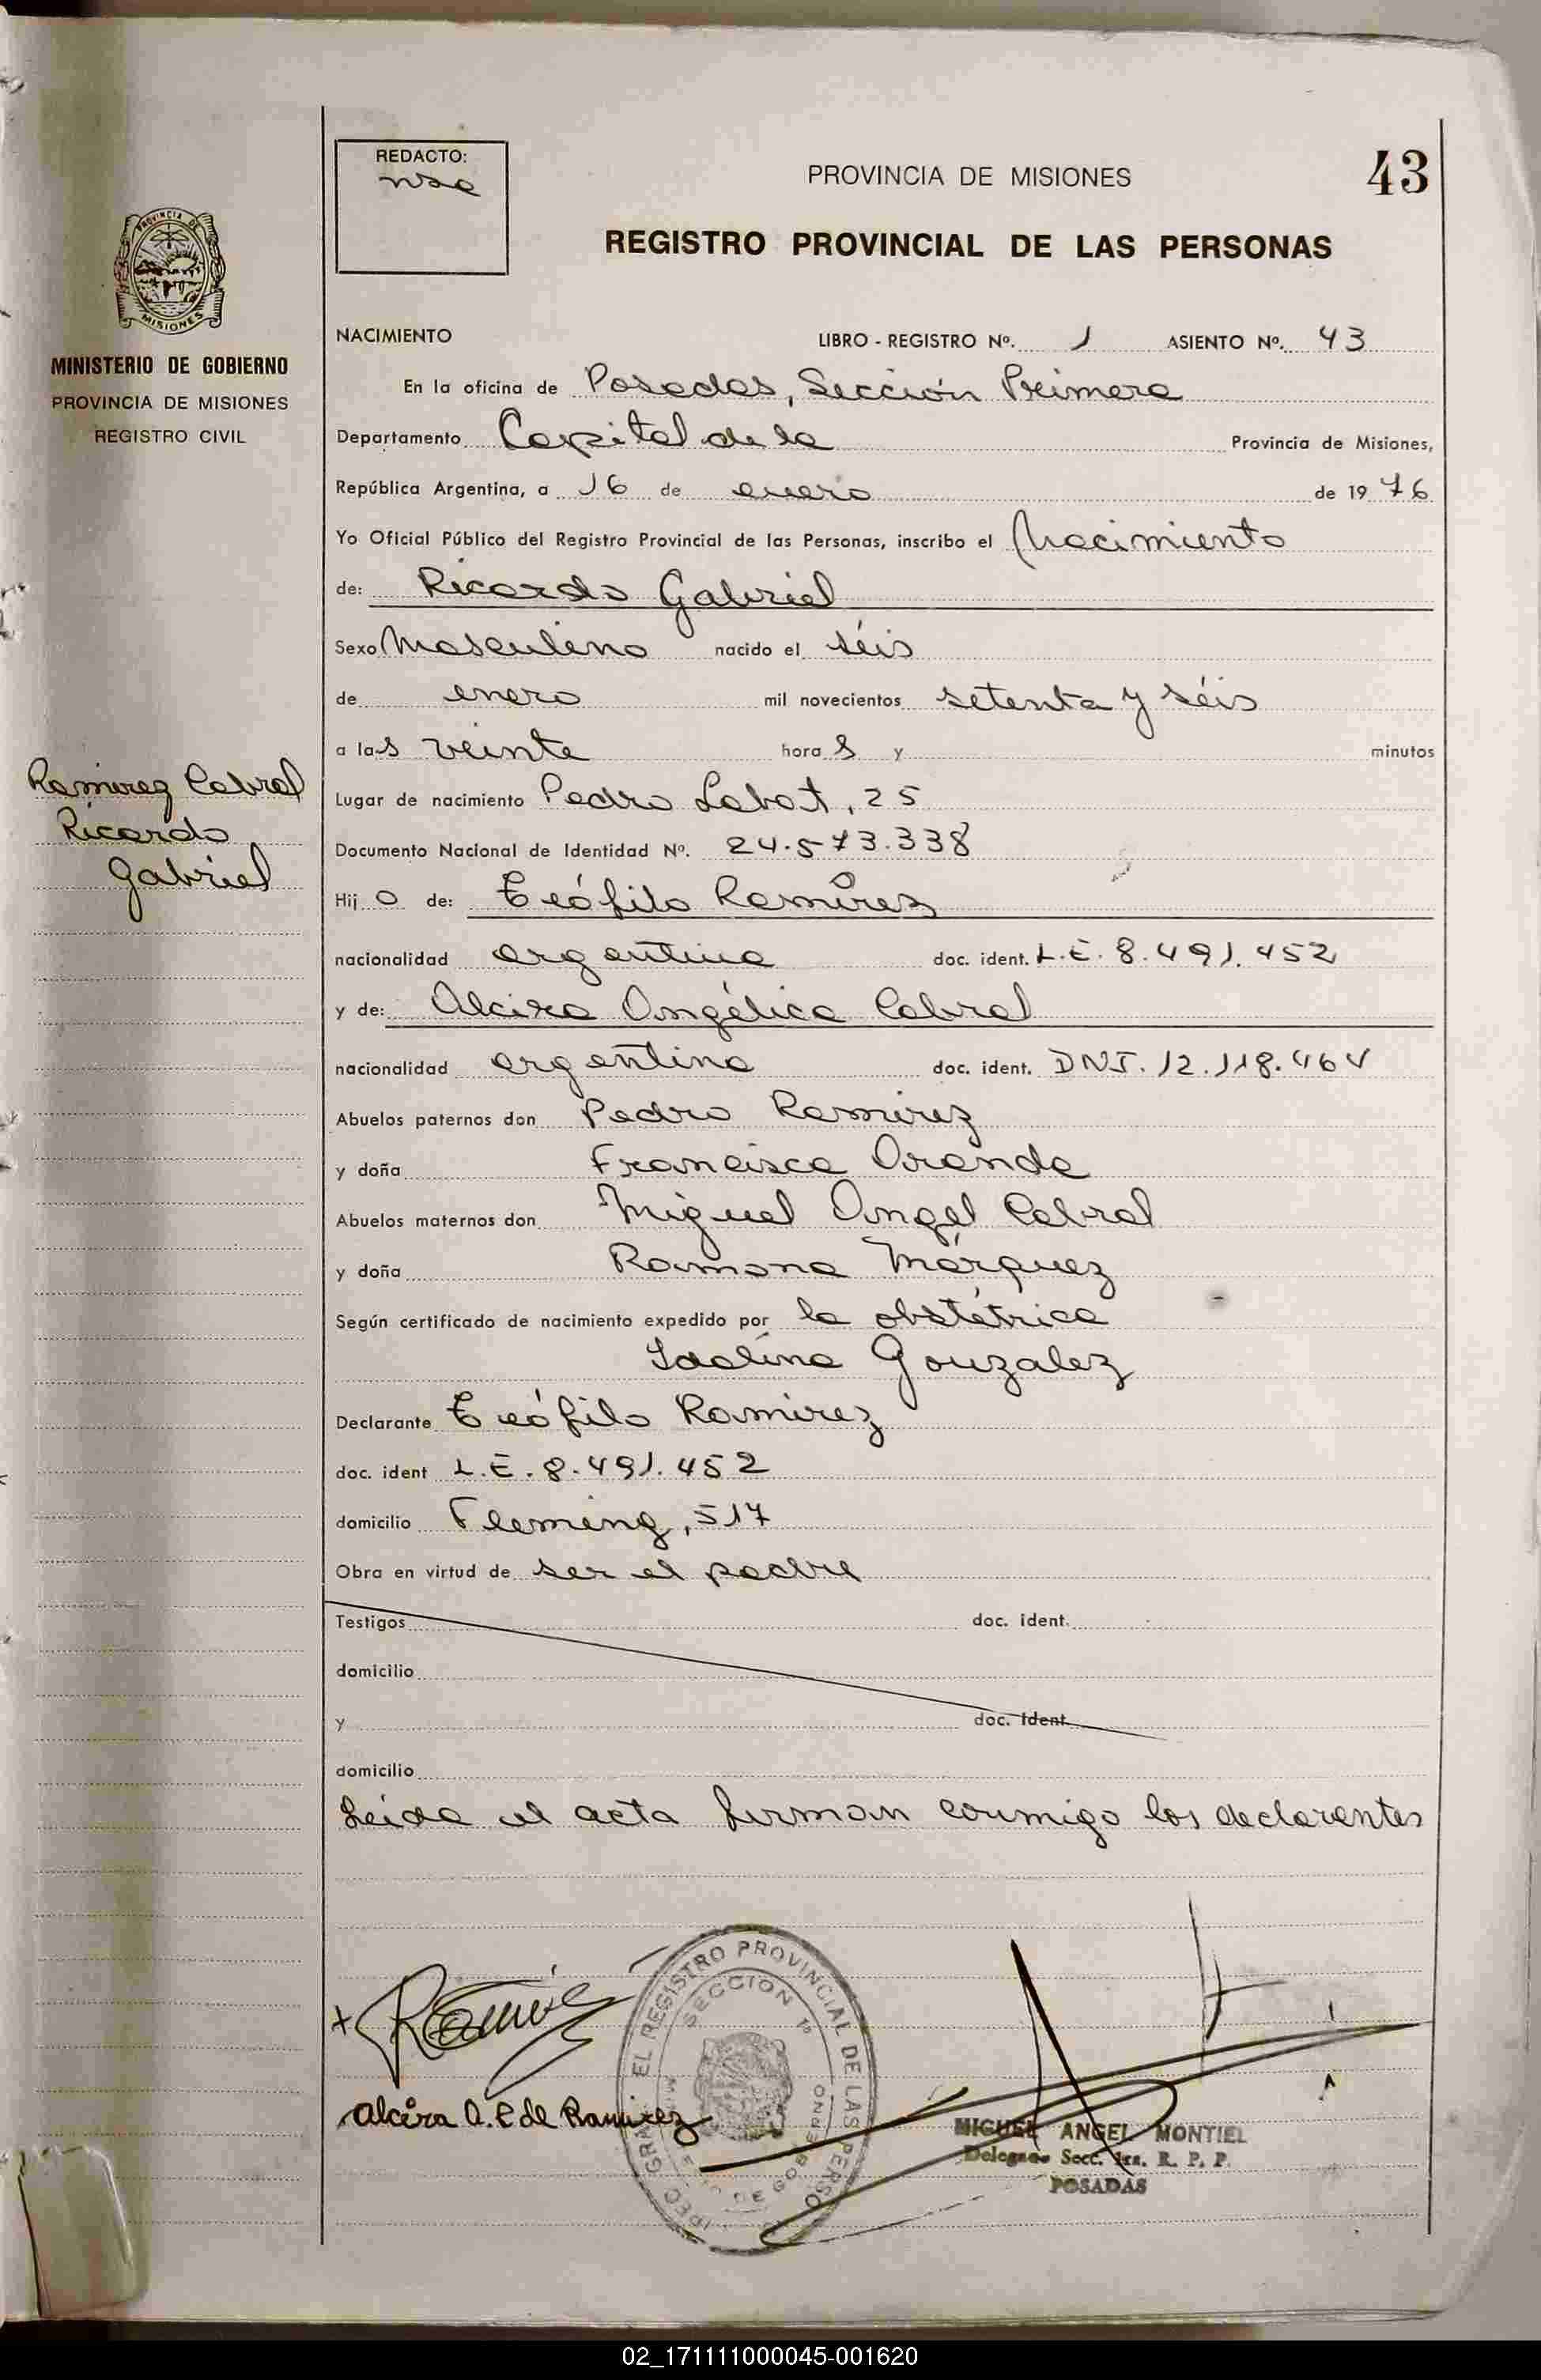 REDACTO:
PROVINCIA DE MISIONES
43
REGISTRO PROVINCIAL DE LAS PERSONAS
PROVINCIA DE
MISIONES
MINISTERIO DE GOBIERNO
PROVINCIA DE MISIONES
REGISTRO CIVIL
NACIMIENTO LIBRO - REGISTRO Nº. 1 ASIENTO Nº. 43
En la oficina de Posadas, Sección Primera
Departamento Capital de la Provincia de Misiones,
República Argentina, a 16 de enero de 19 76
Yo Oficial Público del Registro Provincial de las Personas, inscribo el Nacimiento
de: Ricardo Gabriel
Sexo Masculino nacido el séis
de enero mil novecientos setenta y séis
a las veinte horas y minutos
Ramirez Cabral
Ricardo
Gabriel
Lugar de nacimiento Pedro Labat, 25
Documento Nacional de Identidad Nº. 24.573.338
Hijo de: Teófilo Ramirez
nacionalidad argentina doc. ident. L.E. 8.491.452
y de: Alcira Angélica Cabral
nacionalidad argentina doc. ident. DNI. 12.118.464
Abuelos paternos don Pedro Ramirez
y doña Francisca Aranda
Abuelos maternos don Miguel Angel Cabral
y doña Ramona Márquez
Según certificado de nacimiento expedido por la obstétrica
Idalina Gonzalez
Declarante Teófilo Ramirez
doc. ident L.E. 8.491.452
domicilio Fleming, 517
Obra en virtud de ser el padre
Testigos doc. ident.
domicilio
y doc. ident.
domicilio
Leída el acta firman conmigo los declarantes
EL REGISTRO PROVINCIAL DE LAS PERSO
SECCION 1º
DE GOBIERNO
Alcira A. C de Ramirez
MIGUEL ANGEL MONTIEL
Delegado Secc. 1ra. R. P. P.
POSADAS
02_171111000045-001620